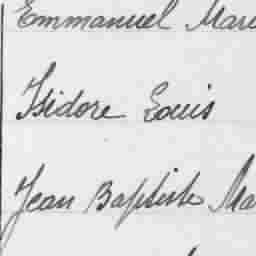 Emmanuel Mar
Isidore Louis
Jean Baptiste Ma